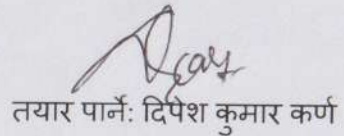 तयार पार्ने: दिपेश कुमार कर्ण